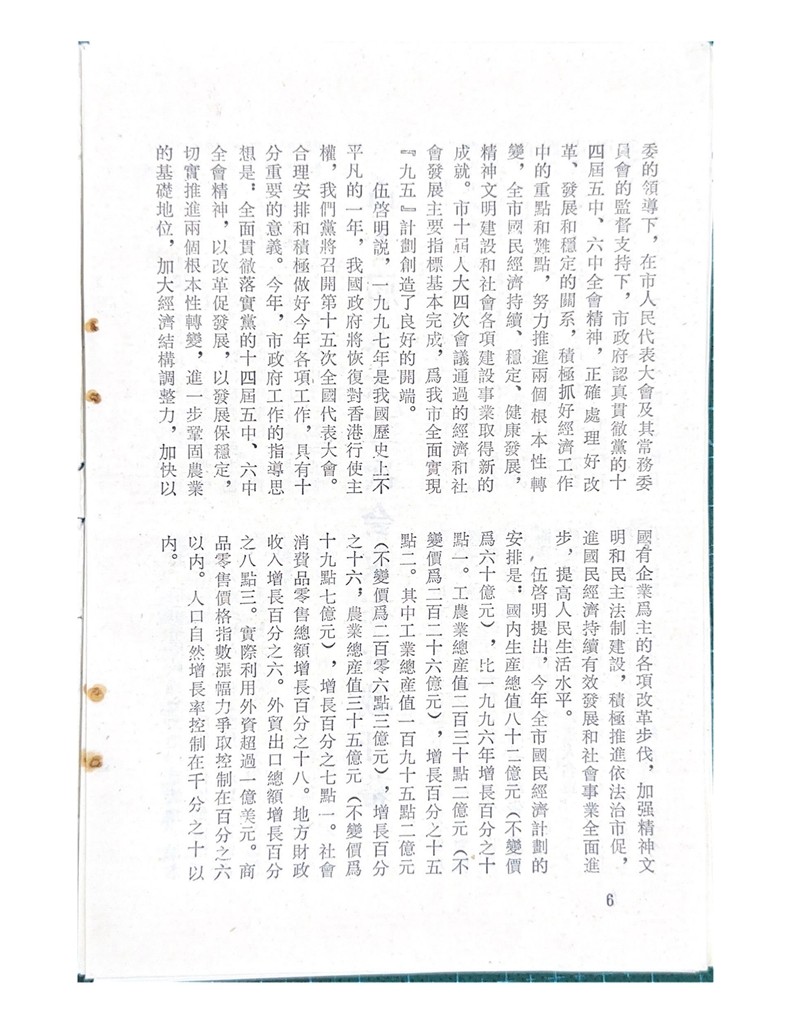 委的領導下，在市人民代表大會及其常務委
員會的監督支持下，市政府認真貫徹黨的十
四屆五中、六中全會精神，正確處理好改
革、發展和穩定的關系，積極抓好經濟工作
中的重點和難點，努力推進兩個根本性轉
變，全市國民經濟持續、穩定、健康發展，
精神文明建設和社會各項建設事業取得新的
成就。市十屆人大四次會議通過的經濟和社
會發展主要指標基本完成，爲我市全面實現
『九五』計劃創造了良好的開端。
伍啓明説，一九九七年是我國歷史上不
平凡的一年，我國政府將恢復對香港行使主
權，我們黨將召開第十五次全國代表大會。
合理安排和積極做好今年各項工作，具有十
分重要的意義。今年，市政府工作的指導思
想是：全面貫徹落實黨的十四屆五中、六中
全會精神，以改革促發展，以發展保穩定，
切實推進兩個根本性轉變，進一步鞏固農業
的基礎地位，加大經濟結構調整力，加快以
國有企業爲主的各項改革步伐，加强精神文
明和民主法制建設，積極推進依法治市促，
進國民經濟持續有效發展和社會事業全面進
步，提高人民生活水平。
伍啓明提出，今年全市國民經濟計劃的
安排是：國内生産總值八十二億元（不變價
爲六十億元），比一九九六年增長百分之十
點一。工農業總産值二百三十點二億元（不
變價爲二百二十六億元），增長百分之十五
點二。其中工業總産值一百九十五點二億元
（不變價爲二百零六點三億元），增長百分
之十六；農業總産值三十五億元（不變價爲
十九點七億元），增長百分之七點一。社會
消費品零售總額增長百分之十八。地方財政
收入增長百分之六。外貿出口總額增長百分
之八點三。實際利用外資超過一億美元。商
品零售價格指數漲幅力爭取控制在百分之六
以内。人口自然增長率控制在千分之十以
内。
6